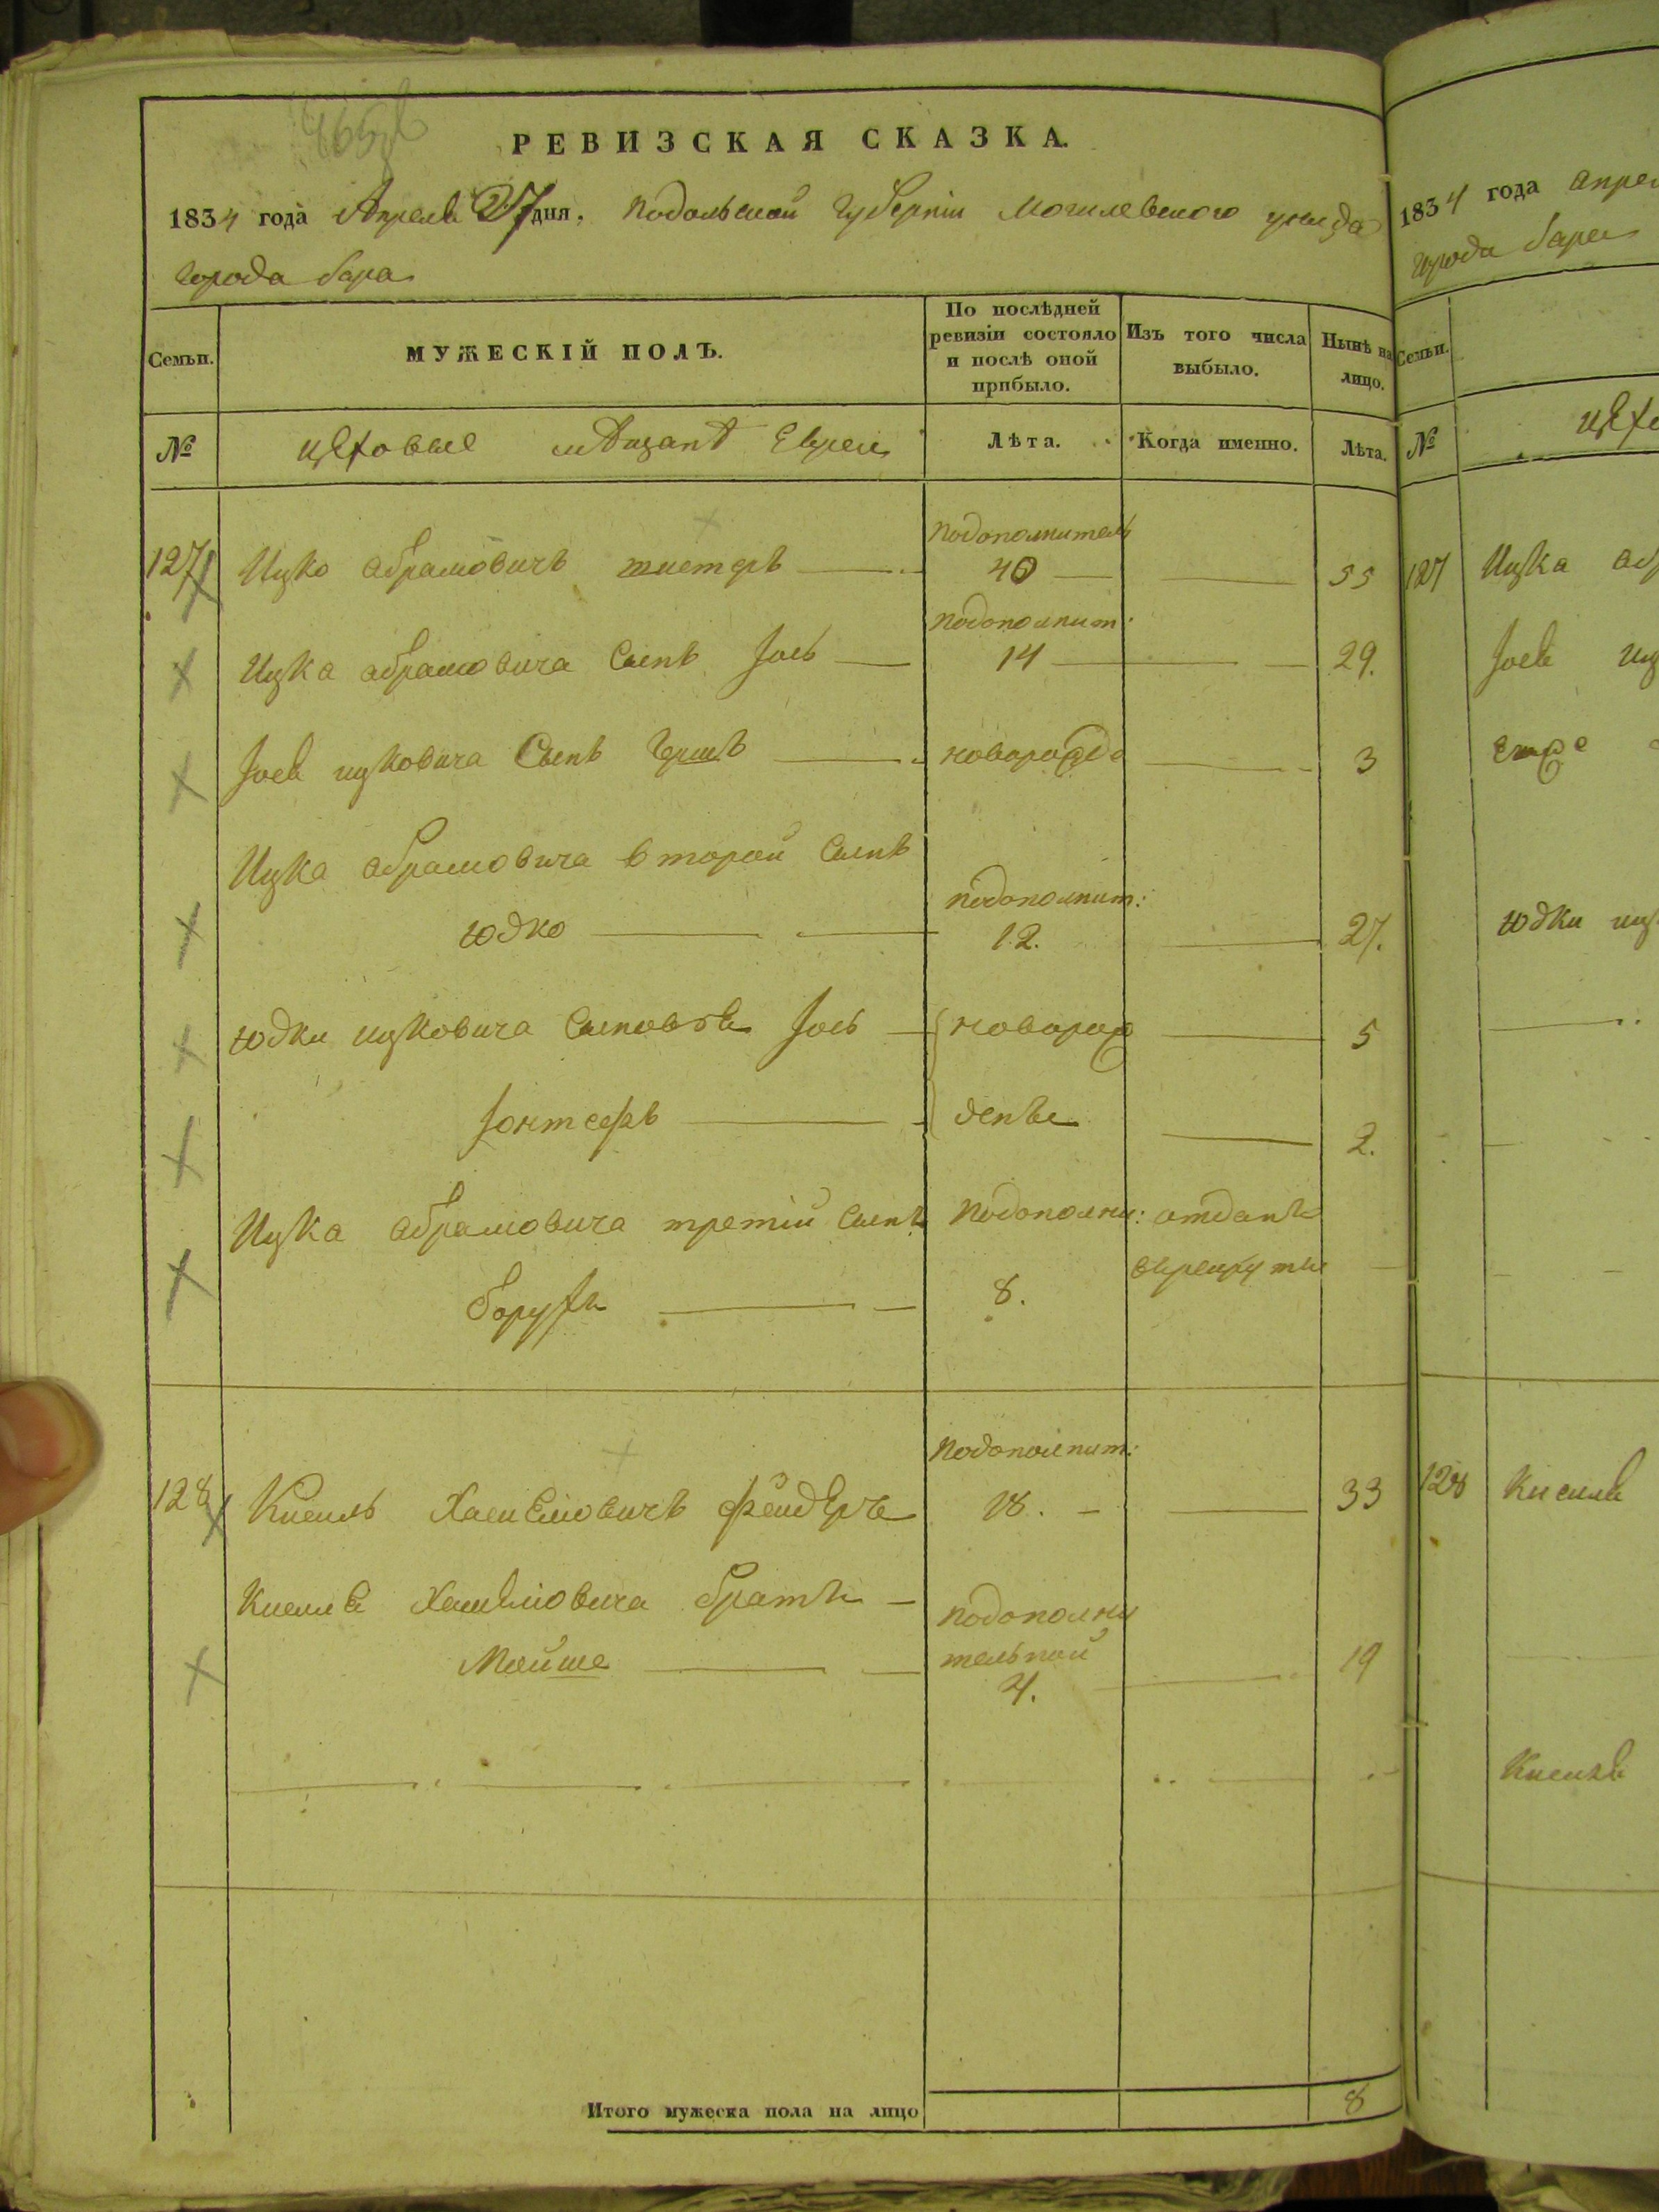 РЕВИЗСКАЯ СКАЗКА.
1834 года Апреля 27 дня. Подольской Губерніи Могилевского уезда
города бара
Семьи. МУЖЕСКІЙ ПОЛЪ. По послѣдней ревизіи состояло и послѣ оной прибыло. Изъ того числа выбыло. Нынѣ на лицо.
№ цеховые Евреи Лѣта. Когда именно. Лѣта.
подополнитель
127 Ицко абрамовичъ 40 55
подополнит:
Ицка абрамовича Сынъ Іось 14 29.
Іося ицковича Сынъ Гершъ новорожде 3
Ицка абрамовича второй Сынъ
подополнит:
юдко 12. 27.
юдки ицковича Сыновья Іось новорож 5
Іонтефъ денъе 2.
Ицка абрамовича третій Сынъ подополни: отданъ
врекруты
борухъ 8.
подополнит:
128 Кисиль 18. 33
брата
подополни
Мойше тельной 19
4.
Итого мужеска пола на лицо 8
1834 года апрел
города бара
Семьи.
№ цехо
127 Ицка аб
Іося иц
юдки иц
128 Кисиля
Кисиля